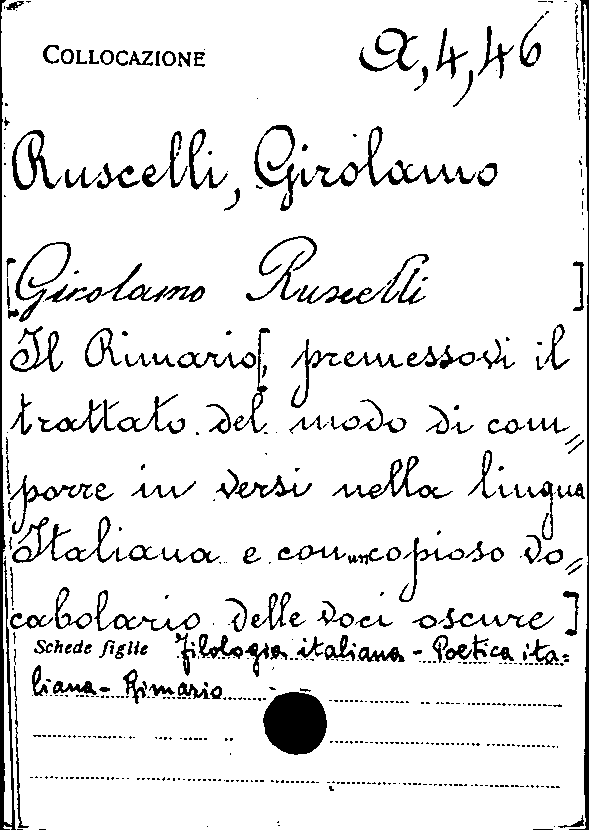 COLLOCAZIONE A,4,46
Ruscelli, Girolamo
[Girolamo Ruscelli]
Il Rimario[, premessovi il
trattato del modo di com=
porre in versi nella lingua
Italiana e con un copioso vo=
cabolario delle voci oscure]
Schede figlie Filologia italiana - Poetica ita-
liana - Rimario